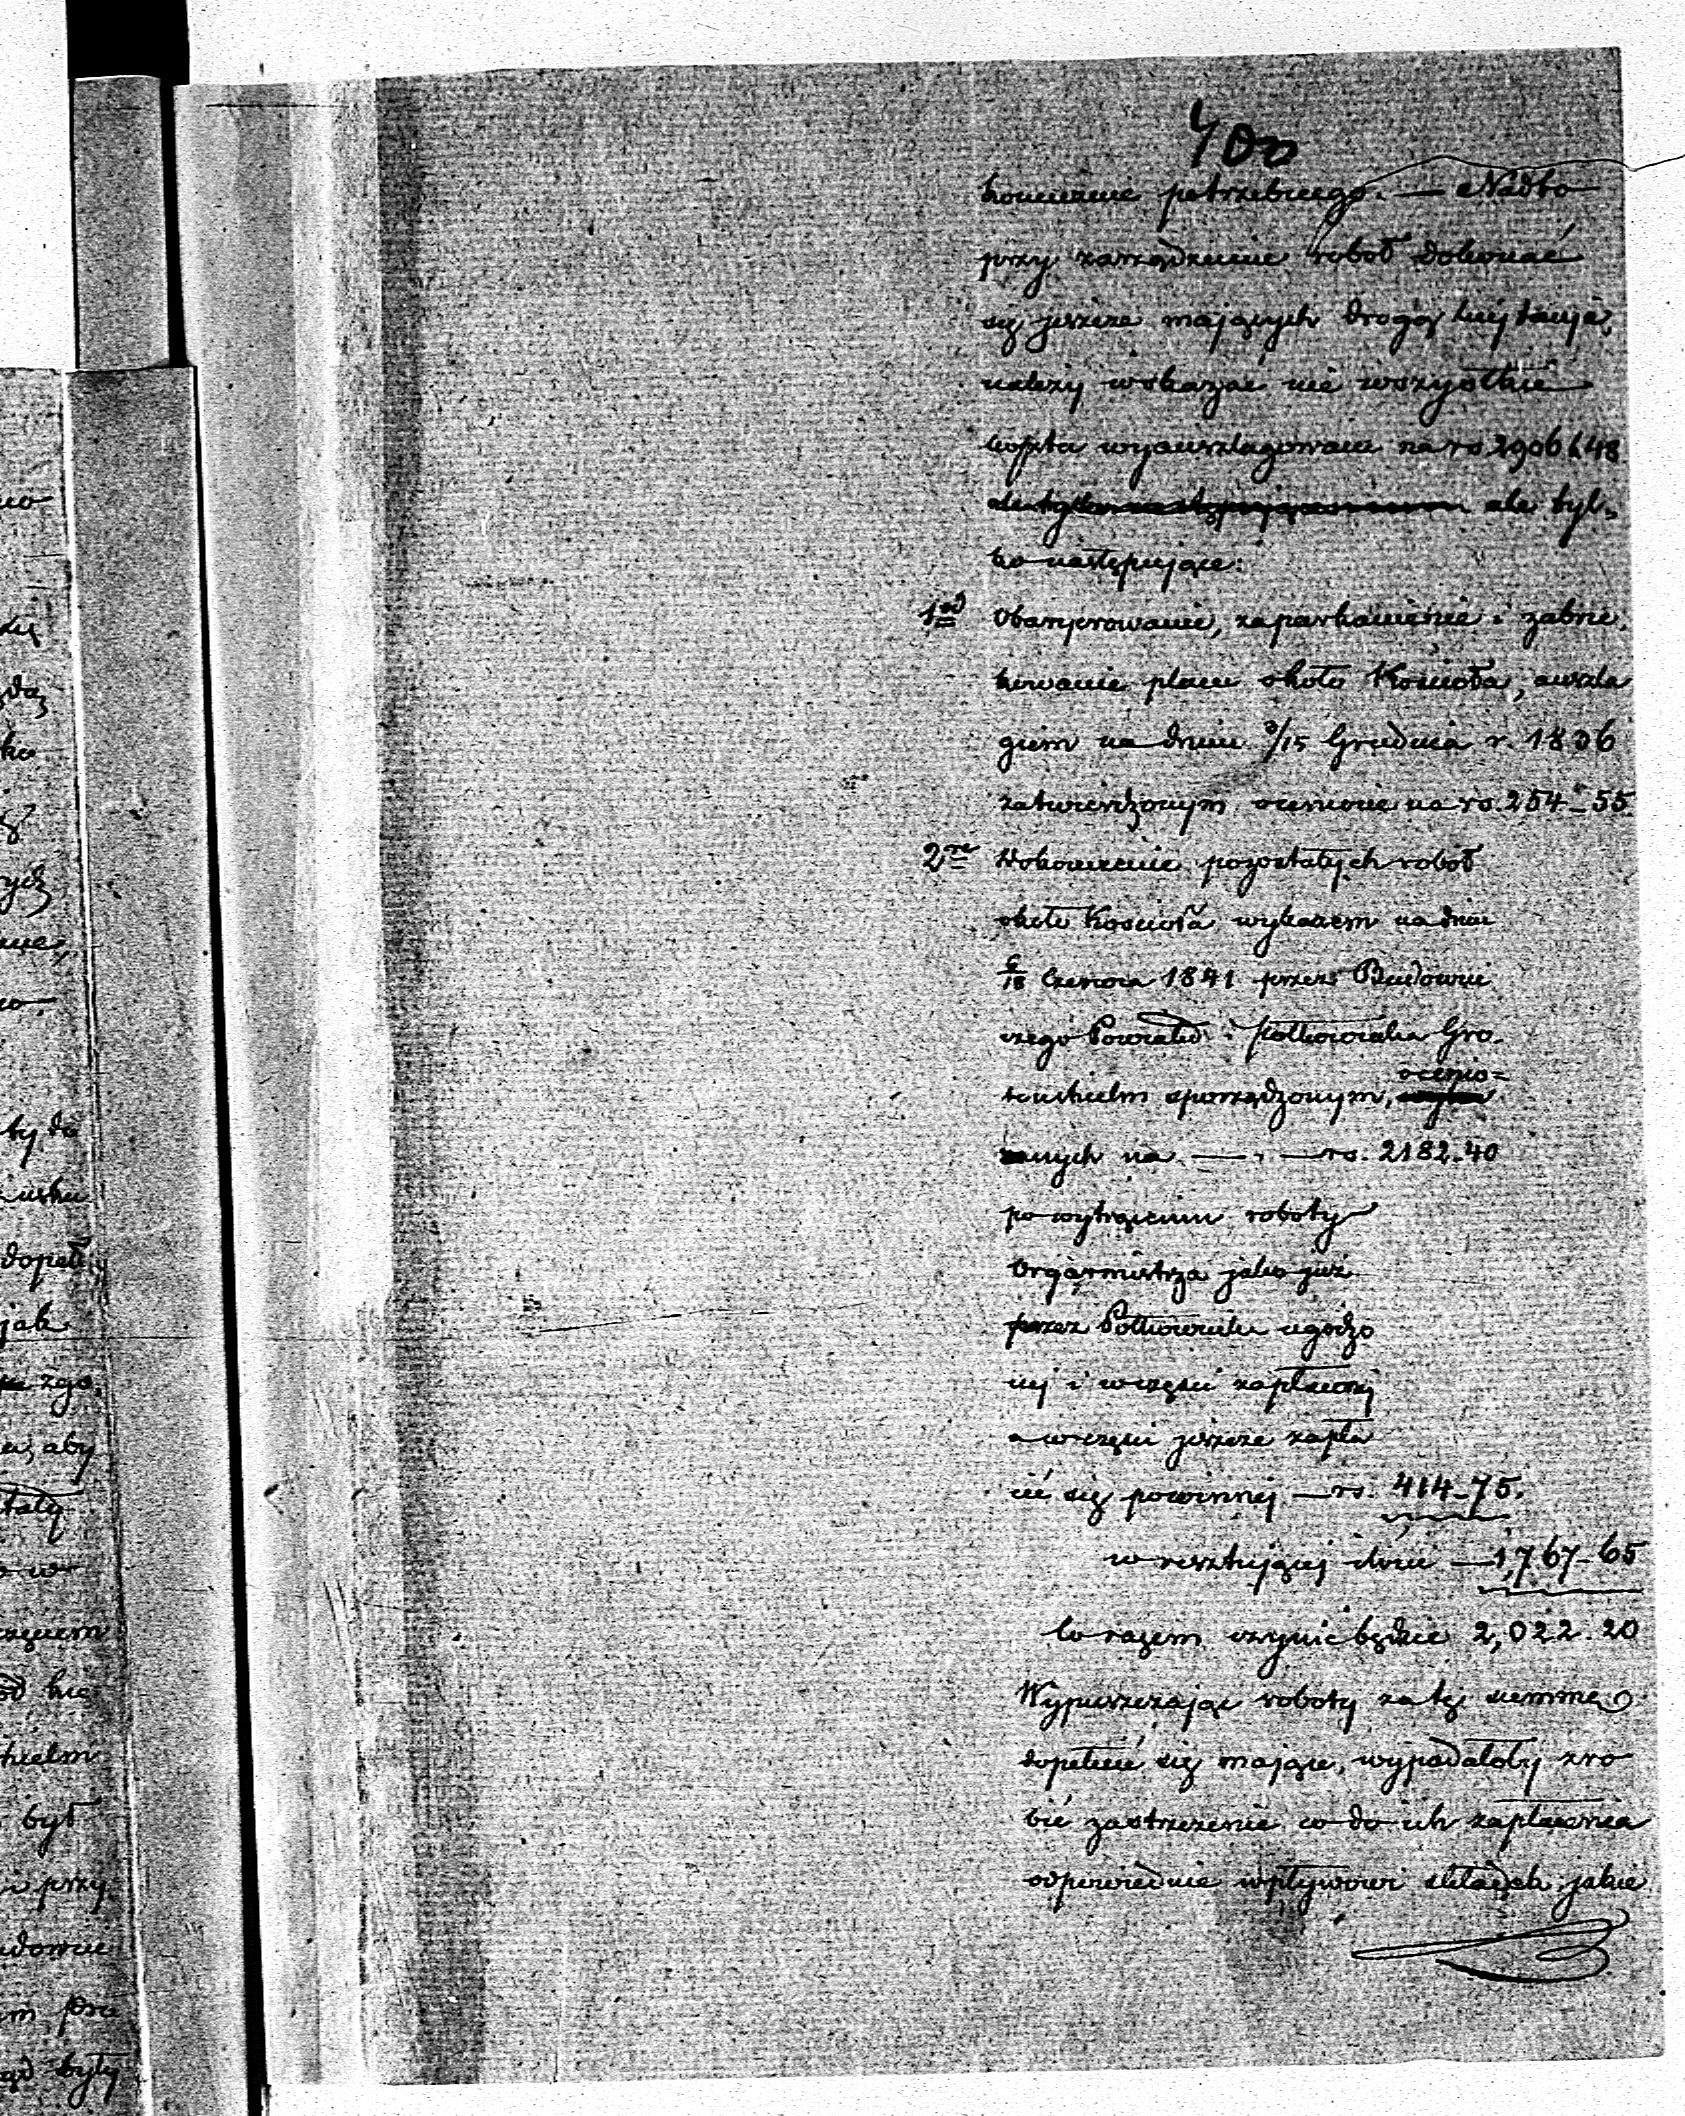 400
koniecznie potrzebnego. — Nadto
przy zarządzeniu robot dokonać
się jeszcze mających drogą licytacji,
należy wskazać nie wszystkie
koszta wyanszlagowane na rs 2906 k 48
ale tyl-
ko następujące:
1od Obarjerowanie, zaparkanienie i zabru-
kowanie placu około Kościoła, anszla
giem na dniu 3/15 Grudnia r. 1836
zatwierdzonym ocenione na rs. 254-55
2re Dokończenie pozostałych robot
około Kościoła wykazem na dniu
6/18 Czerwca 1841 przez Budowni
czego Powiatu i Półkownika Gro-
tenhielm sporządzonym, ocenio=
nych na — rs. 2182.40
po wytrąceniu roboty
Organmistrza jako już
przez Półkownika ugodzo
nej i w części zapłaconej
a w części jeszcze zapła
cić się powinnej — rs. 414-75.
w resztującej ilości — 1,767-65
Co razem czynić będzie 2,022.20
Wypuszczając roboty za tę summę
dopełnić się mające, wypadałoby zro
bić zastrzeżenie co do ich zapłacenia
odpowiednie wpływowi składek jakie
no
ko
ych
by do
dopeł
jak
zgo
aby
w
hielm
był
i przy
były